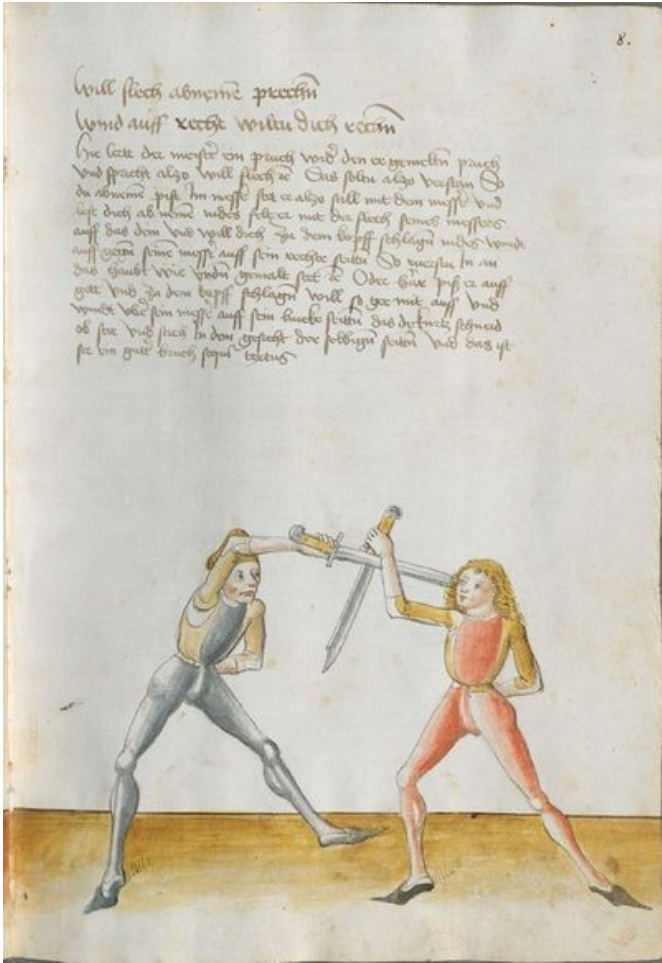 8.
Will flech abneme prechn
Wind auff rechte wiltu dich rechn
Hie lert der meyst ein pruch wid den er gemeltn pruch
Und spricht also will flech Das soltu also versten So
du abneme pist Im messer stet er also still mit dem messer und
lest dich ab neme indes felt er mit der flech seines messers
auff das dein und will dich zu dem kopff schlagn indes wind
auff gegn seine messer auff sein rechte seittn So In an
das haubt wie undn gemalt stet Oder piß er auff
gett und zu dem kopff schlagn will so gee mit auff und
windt ub sein messer auff sein lincke seittn das dy kurtz schneid
ob stee und stich In dem gesicht der selbign seittn Und das ist
ser ein gut bruch textus